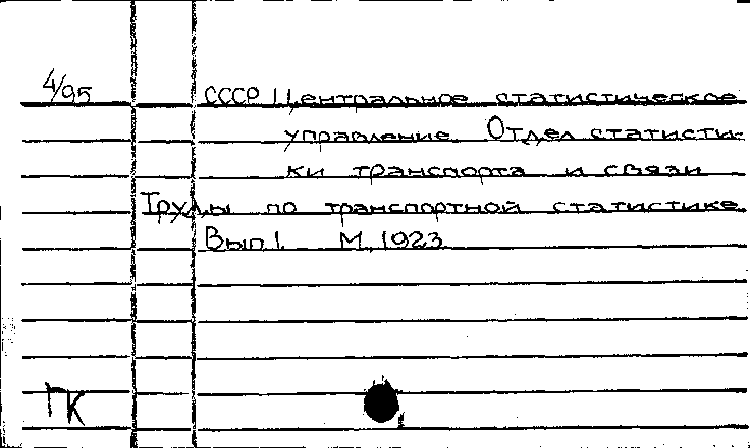 4/95 СССР Центральное статистическое
управление. Отдел статисти-
ки транспорта и связи
Труды по транспортной статистике.
Вып 1. М, 1923
ГК